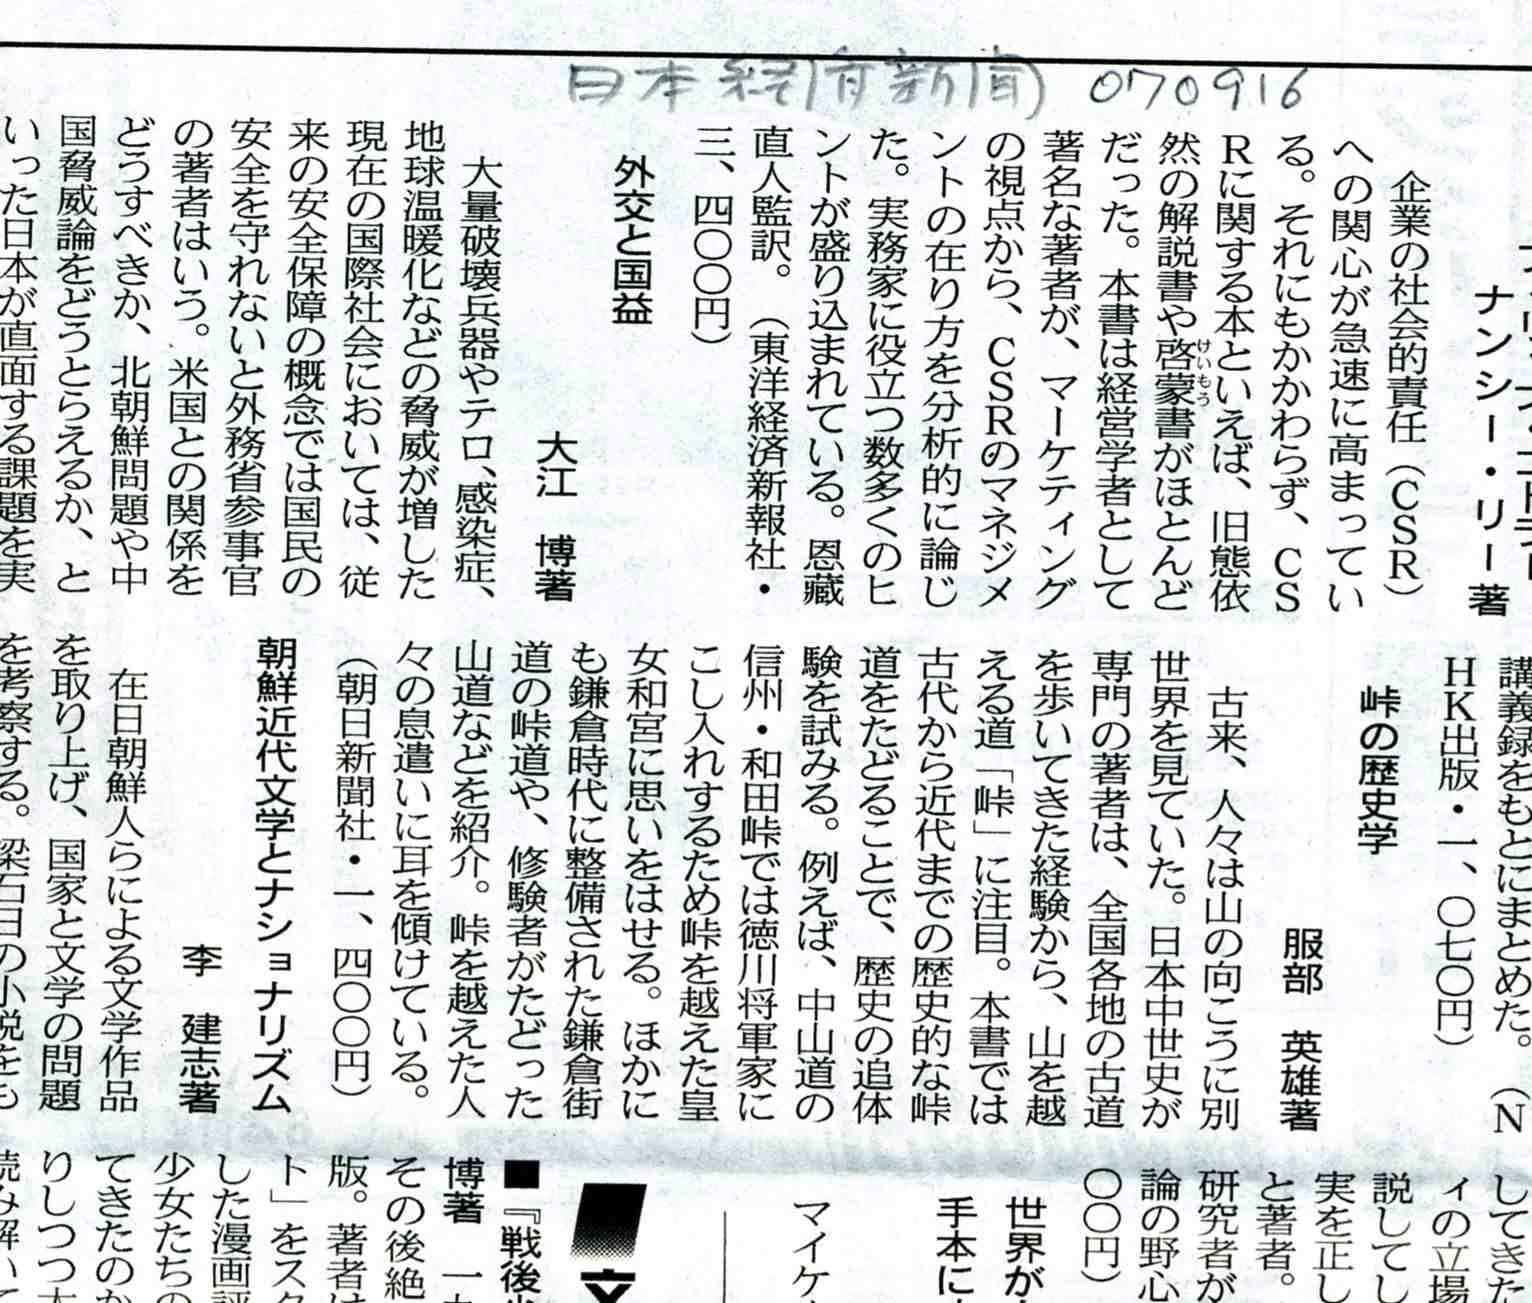 日本経済新聞 070916
ナンシー・リー著
企業の社会的責任（CSR）
への関心が急速に高まってい
る。それにもかかわらず、CS
Rに関する本といえば、旧態依
然の解説書や啓蒙書がほとんど
けいもう
だった。本書は経営学者として
著名な著者が、マーケティング
の視点から、CSRのマネジメ
ントの在り方を分析的に論じ
た。実務家に役立つ数多くのヒ
ントが盛り込まれている。恩藏
直人監訳。（東洋経済新報社・
三、四〇〇円）
外交と国益
大江 博著
大量破壊兵器やテロ、感染症、
地球温暖化などの脅威が増した
現在の国際社会においては、従
来の安全保障の概念では国民の
安全を守れないと外務省参事官
の著者はいう。米国との関係を
どうすべきか、北朝鮮問題や中
国脅威論をどうとらえるか、と
いった日本が直面する課題を実
講義録をもとにまとめた。（N
HK出版・一、〇七〇円）
峠の歴史学
服部 英雄著
古来、人々は山の向こうに別
世界を見ていた。日本中世史が
専門の著者は、全国各地の古道
を歩いてきた経験から、山を越
える道「峠」に注目。本書では
古代から近代までの歴史的な峠
道をたどることで、歴史の追体
験を試みる。例えば、中山道の
信州・和田峠では徳川将軍家に
こし入れするため峠を越えた皇
女和宮に思いをはせる。ほかに
も鎌倉時代に整備された鎌倉街
道の峠道や、修験者がたどった
山道などを紹介。峠を越えた人
々の息遣いに耳を傾けている。
（朝日新聞社・一、四〇〇円）
朝鮮近代文学とナショナリズム
李 建志著
在日朝鮮人らによる文学作品
を取り上げ、国家と文学の問題
を考察する。梁石日の小説をも
してきた
ィの立場
説してし
実を正し
と著者。
研究者が
論の野心
〇〇円）
世界が
手本に
マイケ
■『戦後
博著 一
その後絶
版。著者は
ト」をスタ
した漫画評
少女たちの
てきたのか
りしつつ本
読み解いて